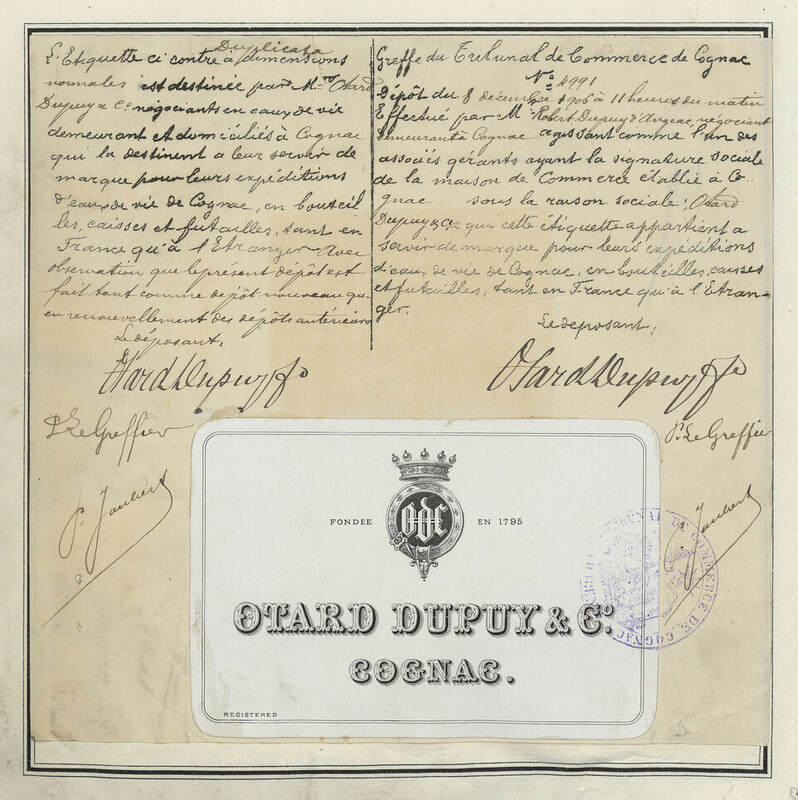 Duplicata
L'Etiquette ci contre à dimensions
normales est destinée par M.rs Otard
Dupuy & Cie négociants en eaux de vie
demeurant et domiciliés à Cognac
qui la destinent à leur servir de
marque pour leurs expéditions
d'eaux de vie de Cognac, en bouteil
les, caisses et futailles, tant en
France qu'à l'Etranger Avec
observation que le présent dépôt est
fait tant comme dépôt nouveau qu'
en renouvellement des dépôts antérieurs
Le déposant:
Otard Dupuy & Co
P. Le Greffier
P. Jaubert
Greffe du Tribunal de Commerce de Cognac
No 4991
Dépôt du 8 décembre 1906 à 11 heures du matin
Effectué par M. Robert Dupuy d'Angeac, négociant
demeurant à Cognac agissant comme l'un des
associés gérants ayant la signature sociale
de la maison de Commerce établie à Co
gnac sous la raison sociale: Otard
Dupuy & Co qui cette étiquette appartient à
servir de marque pour leurs expéditions
d'eaux de vie de Cognac, en bouteilles, caisses
et futailles, tant en France qu'à l'Etran-
ger.
Le déposant:
Otard Dupuy & Co
P. Le Greffier
Jaubert
FONDÉE EN 1795
ODC
OTARD DUPUY & Co.
COGNAC.
REGISTERED
TRIBUNAL DE COMMERCE DE COGNAC